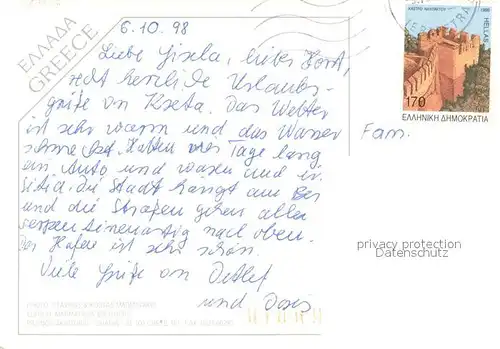 ΕΛΛΑΔΑ
GREECE
6.10.98
Liebe Gisela, lieber Horst,
recht herzliche Urlaubs-
grüße von Kreta. Das Wetter
ist sehr warm und das Wasser
Hatten vier Tage lang
ein Auto und waren auch in
Sitia. Die Stadt hängt am Berg
und die Straßen gehen alle
serpentinenartig nach oben.
Der Hafen ist sehr schön.
Viele Grüße von Detlef
und Doris
HELLAS
170
ΕΛΛΗΝΙΚΗ ΔΗΜΟΚΡΑΤΙΑ
Fam.
privacy protection
Datenschutz